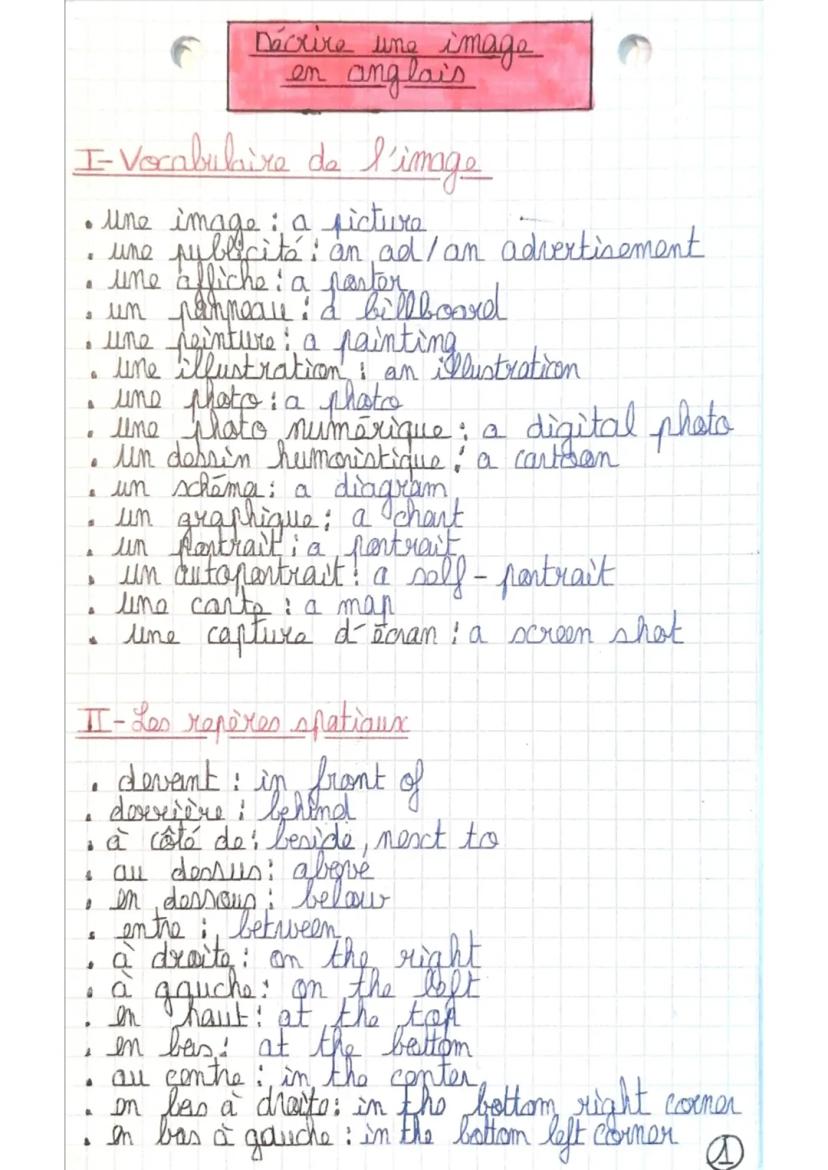 Décrire une image
en anglais
I-Vocabulaire de l'image
• une image : a picture
• une publicité : an ad/an advertisement
• une affiche : a poster
• un panneau : a billboard
• une peinture : a painting
• une illustration : an illustration
• une photo : a photo
• une photo numérique : a digital photo
• un dessin humoristique : a cartoon
• un schéma : a diagram
• un graphique : a chart
• un portrait : a portrait
• un autoportrait : a self-portrait
• une carte : a map
• une capture d'écran : a screen shot
II-Les repères spatiaux
• devant : in front of
• derrière : behind
• à côté de : beside, next to
• au dessus : above
• en dessous : below
• entre : between
• à droite : on the right
• à gauche : on the left
• en haut : at the top
• en bas : at the bottom
• au centre : in the center
• en bas à droite : in the bottom right corner
• en bas à gauche : in the bottom left corner
1